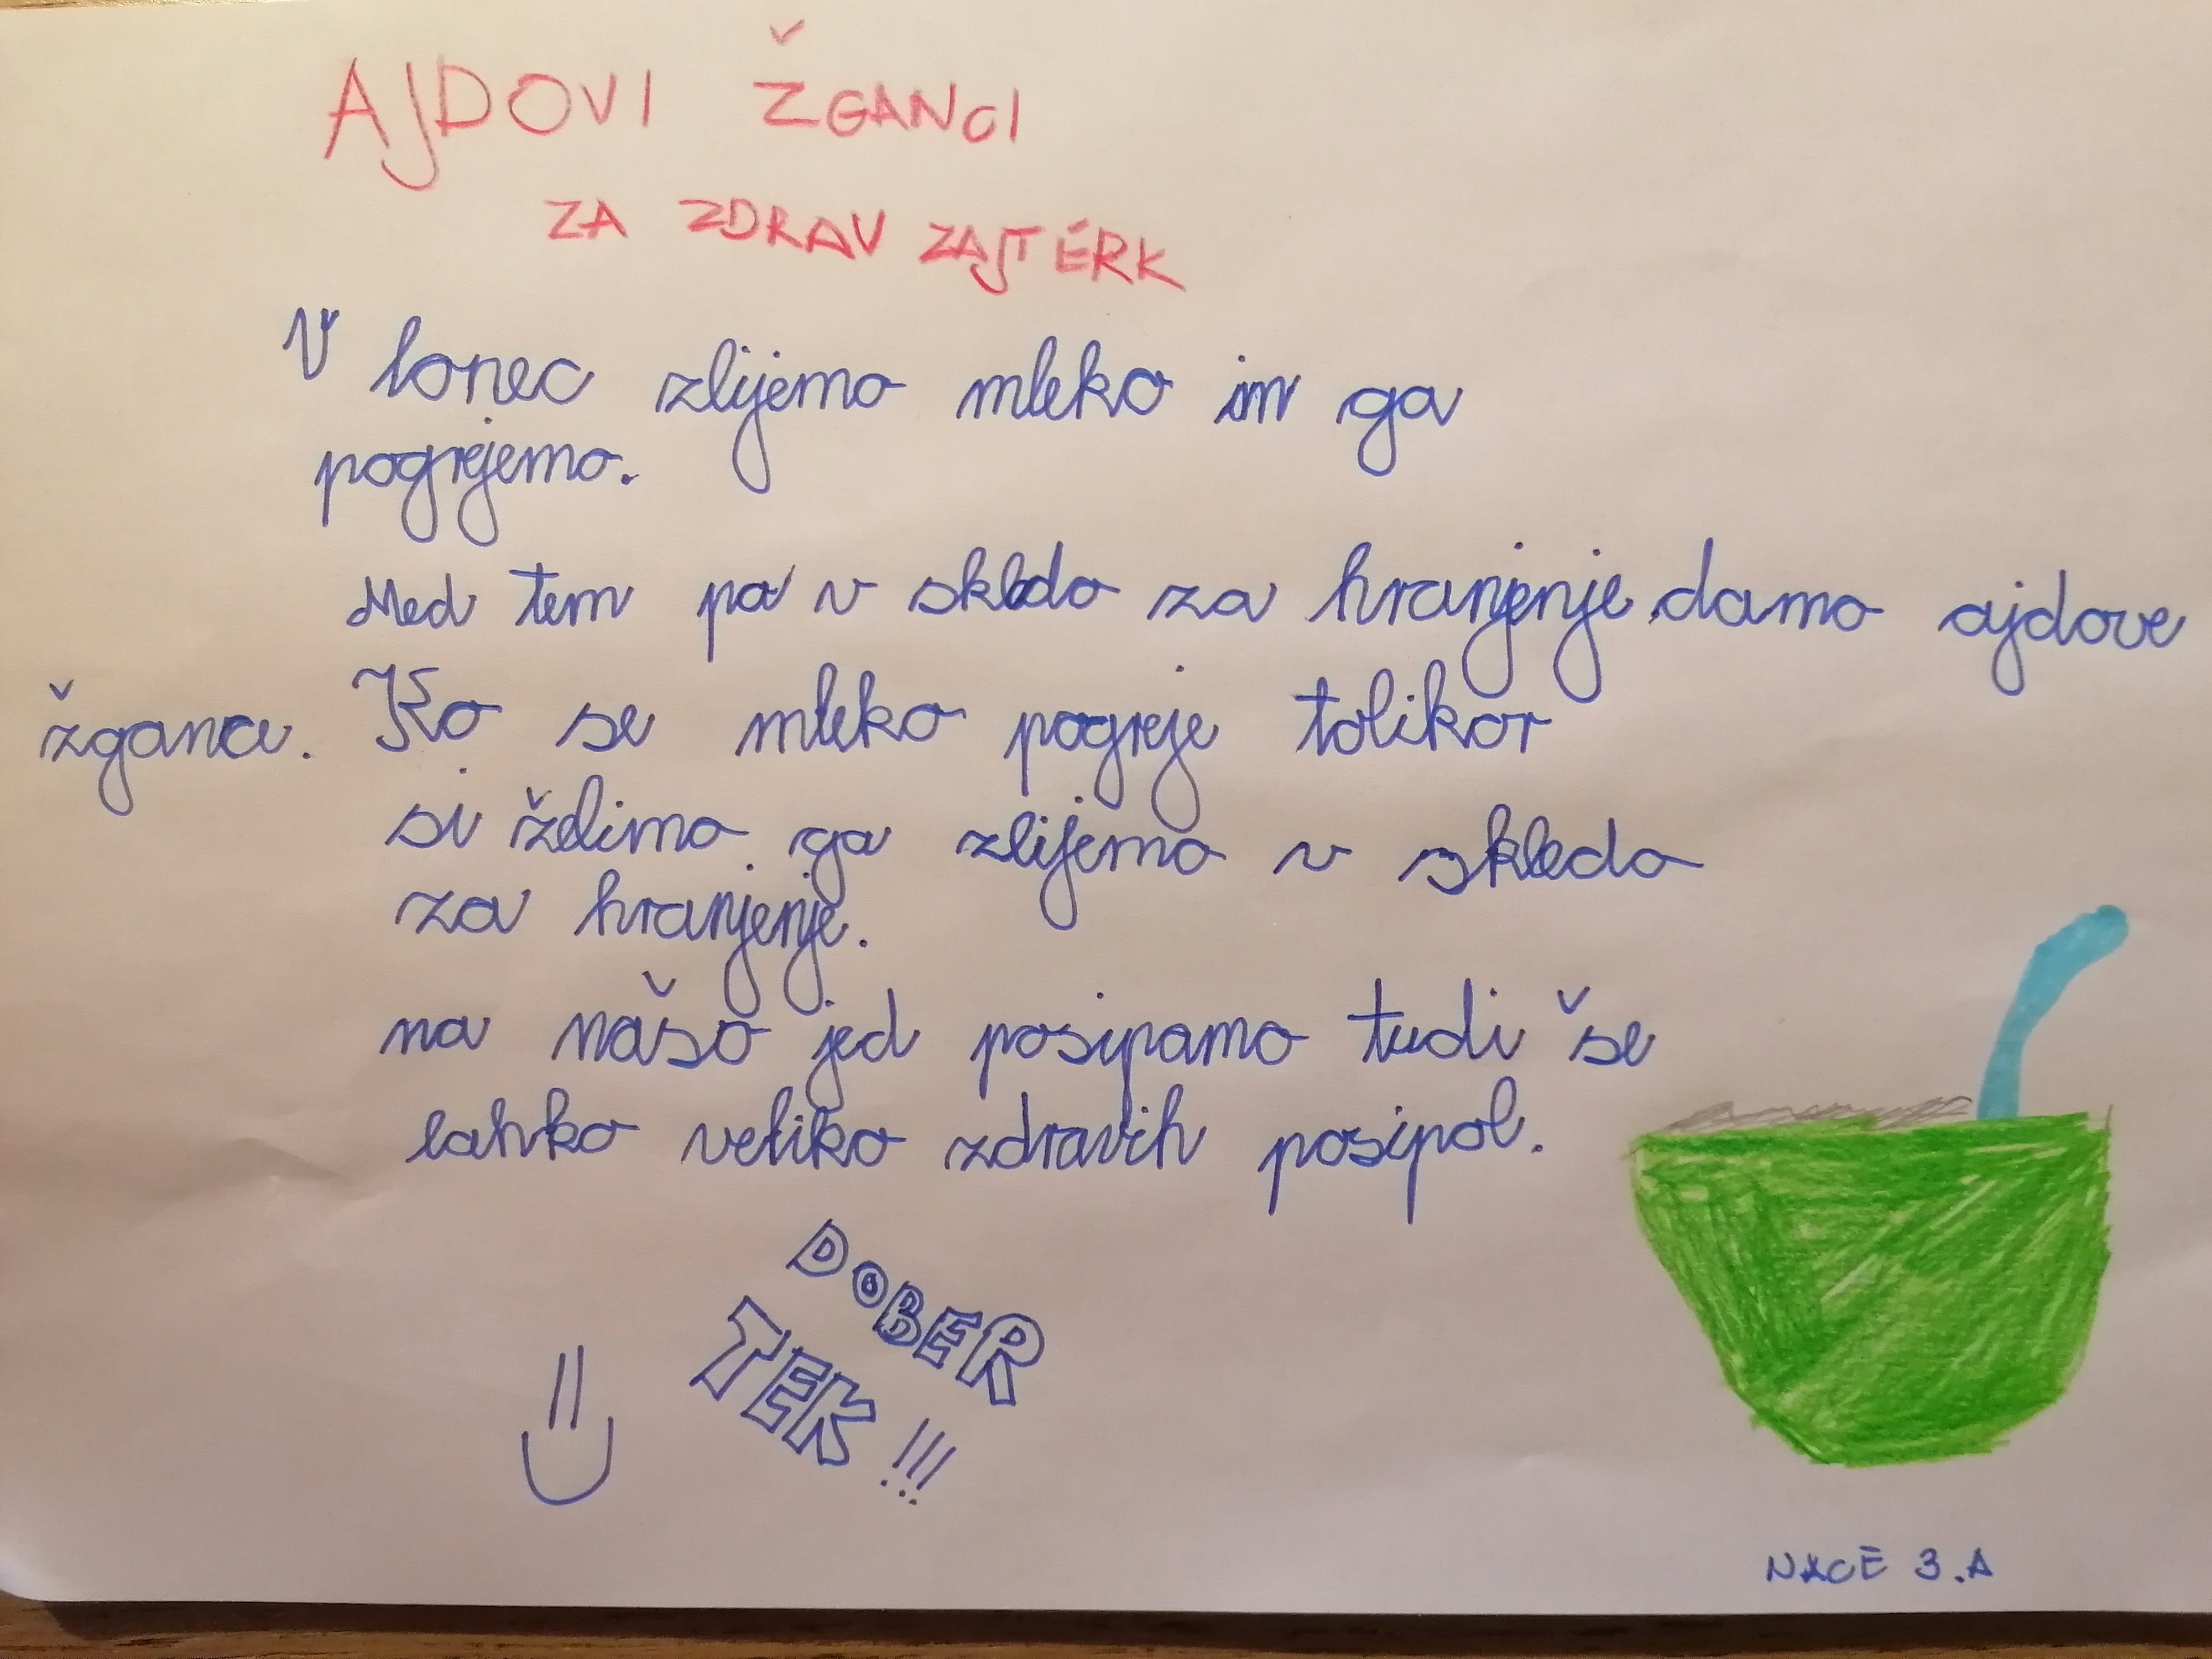 AJDOVI ŽGANCI
ZA ZDRAV ZAJTERK
V lonec zlijemo mleko in ga
pogrejemo.
Med tem pa v skledo za hranjenje damo ajdove
žgance. Ko se mleko pogreje tolikor
si ždimo ga zlijemo v skledo
za hranjenje.
na našo jed posipamo tudi še
lahko veliko zdravih posipol.
DOBER
TEK!!!
NACE 3.A